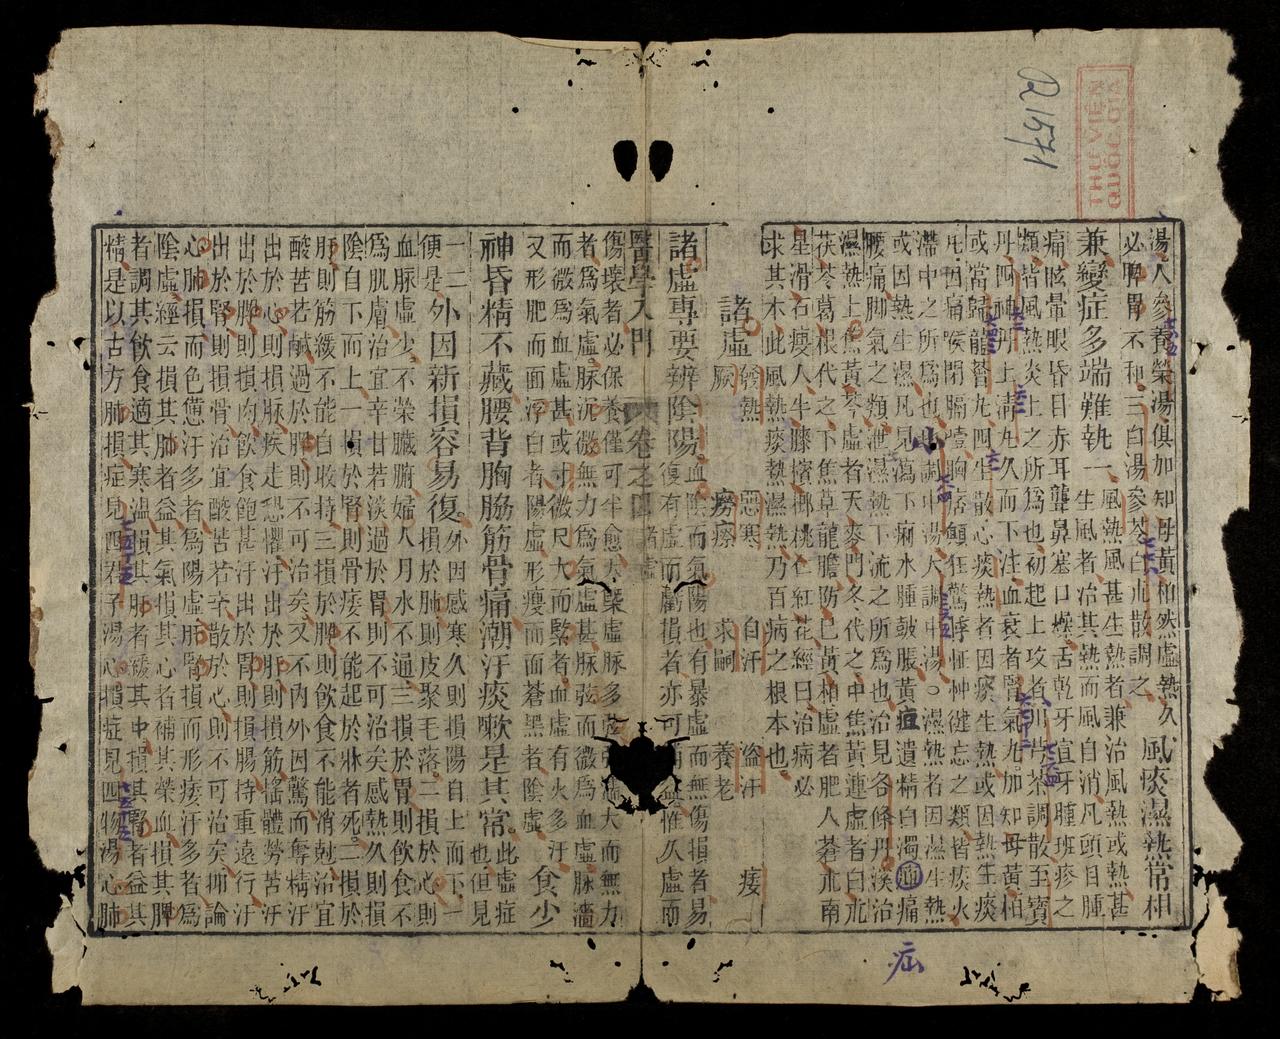 湯人參養榮湯俱加知母黃柏然虛熱久 風痰濕熱常相
必脾胃不和三白湯參苓白朮散調之
兼變症多端難執一 風熱風甚生熱者兼治風熱或熱甚
生風者冶其熱而風自消凡頭目腫
痛眩暈眼昏目赤耳聾鼻塞口燥舌乾牙宜牙腫班疹之
類皆風熱炎上之所爲也初起上攻者川芎茶調散至寶
丹四神丹上清丸久而下注血衰者腎氣丸加知母黃柏
或當歸龍薈丸四生散心痰熱者因痰生熱或因熱生痰
凡因痛喉閉膈噎胸痞顚狂驚悸怔忡健忘之類皆痰火
滯中之所爲也 調中湯大調中湯○濕熱者因濕生熱
或因熱生濕凡見瀉下痢水腫皷脹黃疸遺精白濁疝痛
腰痛脚氣之類泄濕熱下流之所爲也治見各條丹溪治
濕熱上焦黃芩虛者天麥門冬代之中焦黃連虛者白朮
茯苓葛根代之下焦草龍膽防巳黃柏虛者肥人蒼朮南
星滑石瘦人牛膝檳榔桃仁紅花經曰治病必
求其本此風熱痰熱濕熱乃百病之根本也
發熱 惡寒 自汗 盜汗 痿
諸虛
厥 癆瘵 求嗣 養老
諸虛專要辨陰陽 血陰而氣陽也有暴虛而無傷損者易
復有虛而虧損者亦可 惟久虛而
醫學入門 卷之四 諸虛
傷壞者必保養僅可半愈大槩虛脉多 弦 大而無力
者爲氣虛脉沉微無力爲氣虛甚脉弦而微爲血虛脉濇
而微爲血虛甚或寸微尺大而緊者血虛有火多汗 食少
又形肥而面浮白者陽虛形瘦而面蒼黑者陰虛
神昏精不藏腰背胸脇筋骨痛潮汗痰嗽是其常 此虛症
也但見
一二 外因新損容易復 外因感寒久則損陽自上而下一
便是 損於肺則皮聚毛落二損於心則
血脉虛少不榮臟腑婦人月水不通三損於胃則飲食不
爲肌膚治宜辛甘若淡過於胃則不可治矣感熱久則損
陰自下而上一損於腎則骨痿不能起於牀者死二損於
肝則筋緩不能自收持三損於脾則飲食不能消尅治宜
酸苦若鹹過於脾則不可治矣又不內外因驚而奪精汗
出於心則損脉疾走恐懼汗出於肝則損筋搖體勞苦汗
出於脾則損肉飲食飽甚汗出於胃則損腸持重遠行汗
出於腎則損骨治宜酸苦若辛散於心則不可治矣抑論
心肺損而色憊汗多者爲陽虛肝腎損而形痿汗多者爲
陰虛經云損其肺者益其氣損其心者補其榮血損其脾
者調其飲食適其寒溫損其肝者緩其中損其腎者益其
精是以古方肺損症見四君子湯心損症見四物湯心肺
THƯ VIỆN
QUỐC GIA
R1571
疝